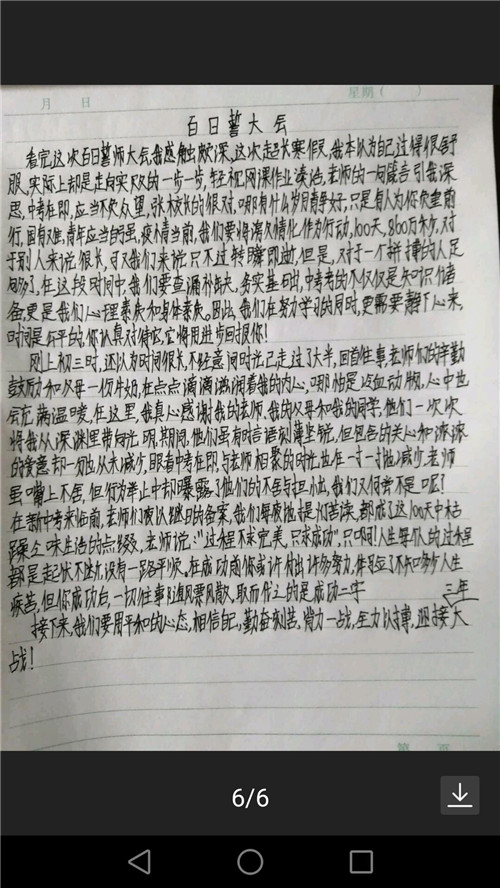 月 日 星期( )
百日誓大会
看完这次百日誓师大会,我感触颇深,这次超长寒假,我本以为自己过得很舒
服,实际上却是走向实败的一步一步,轻视网课作业读治,老师的一句箴言引我深
思,中考在即,应当不负众望,张校长的很对,哪有什么岁月静好,只是有人为你负重前
行,国有难,青年应当自强,疫情当前,我们要将满双情化作为行动,100天,860万秒,对
于别人来说很长,可双我们来说只不过转瞬即逝,但是,对于一个拼搏的人足
够了,在这段时间中,我们要查漏补缺,务实基础,中考考的不仅仅是知识储
备,更是我们心理素质和身体素质。因此,我们在努力学习的同时,更需要静下心来,
时间是公平的,你认真对待它,它将用进步回报你!
刚上初三时,还以为时间很长,不经意间时光已走过了大半,回首往事,老师们的辛勤
鼓励和父母一份牛奶,在点点滴滴滋润着我的内心,哪怕是点血动脉,心中也
会充满温暖,在这里,我真心感谢我的老师,我的父母和我的同学,他们一次次
将我从深渊里带向光明,期间,他们虽有时言语刻薄坚锐,但包含的关心和深深
的爱意却一刻也从未减少,眼看中考在即,与老师相聚的时光也在一寸一寸地减少,老师
虽嘴上不舍,但行为举止中却曝露了他们的不舍与担忧,我们又何尝不是呢?
在新中考来临前,老师们夜以继日的备案,我们每夜地提灯苦读,都成了这100天中枯
躁乏味生活的点缀,老师说:"过程不求完美,只求成功",只明人生每个的过程
都是起伏不断,没有一路平顺。在成功前你或许付出许多努力,伴见应了不知多少人生
疾苦,但你成功后,一切往事都随风飘散,取而代之的是成功二字
三年
接下来,我们要用平和的心态,相信自己,勤奋刻苦,背力一战,全力以搏,迎接大
战!
6/6